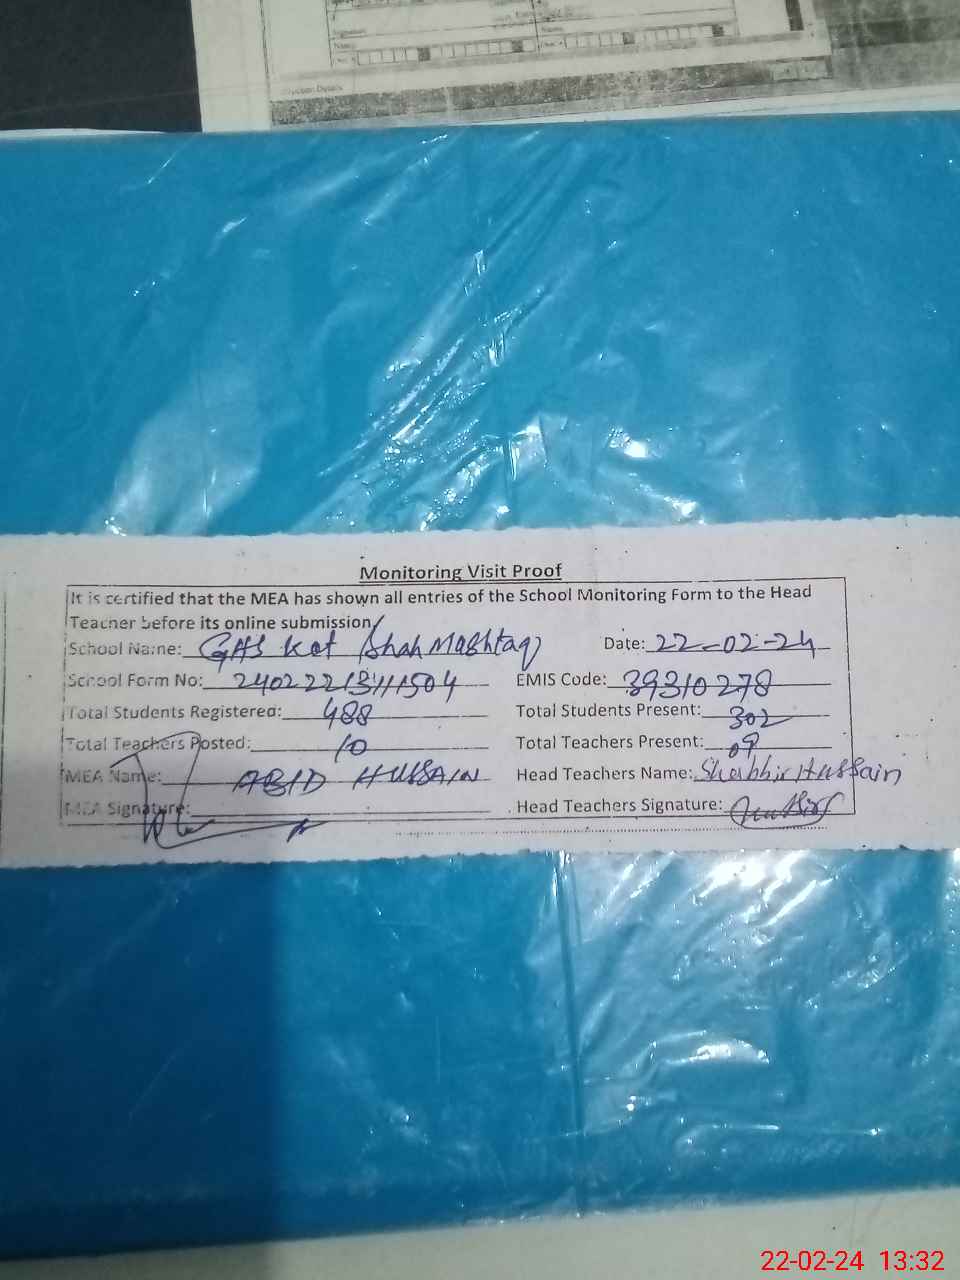 Monitoring Visit Proof
It is certified that the MEA has shown all entries of the School Monitoring Form to the Head
Teacher before its online submission.
School Name: GHS Kot Shah Mashtaq Date: 22-02-24
School Form No: EMIS Code: 39310278
Total Students Registered: 488 Total Students Present: 302
Total Teachers Posted: 10 Total Teachers Present: 09
MEA Name: ABID HUSSAIN Head Teachers Name: Shabbir Hussain
MEA Signature: Head Teachers Signature:
22-02-24 13:32